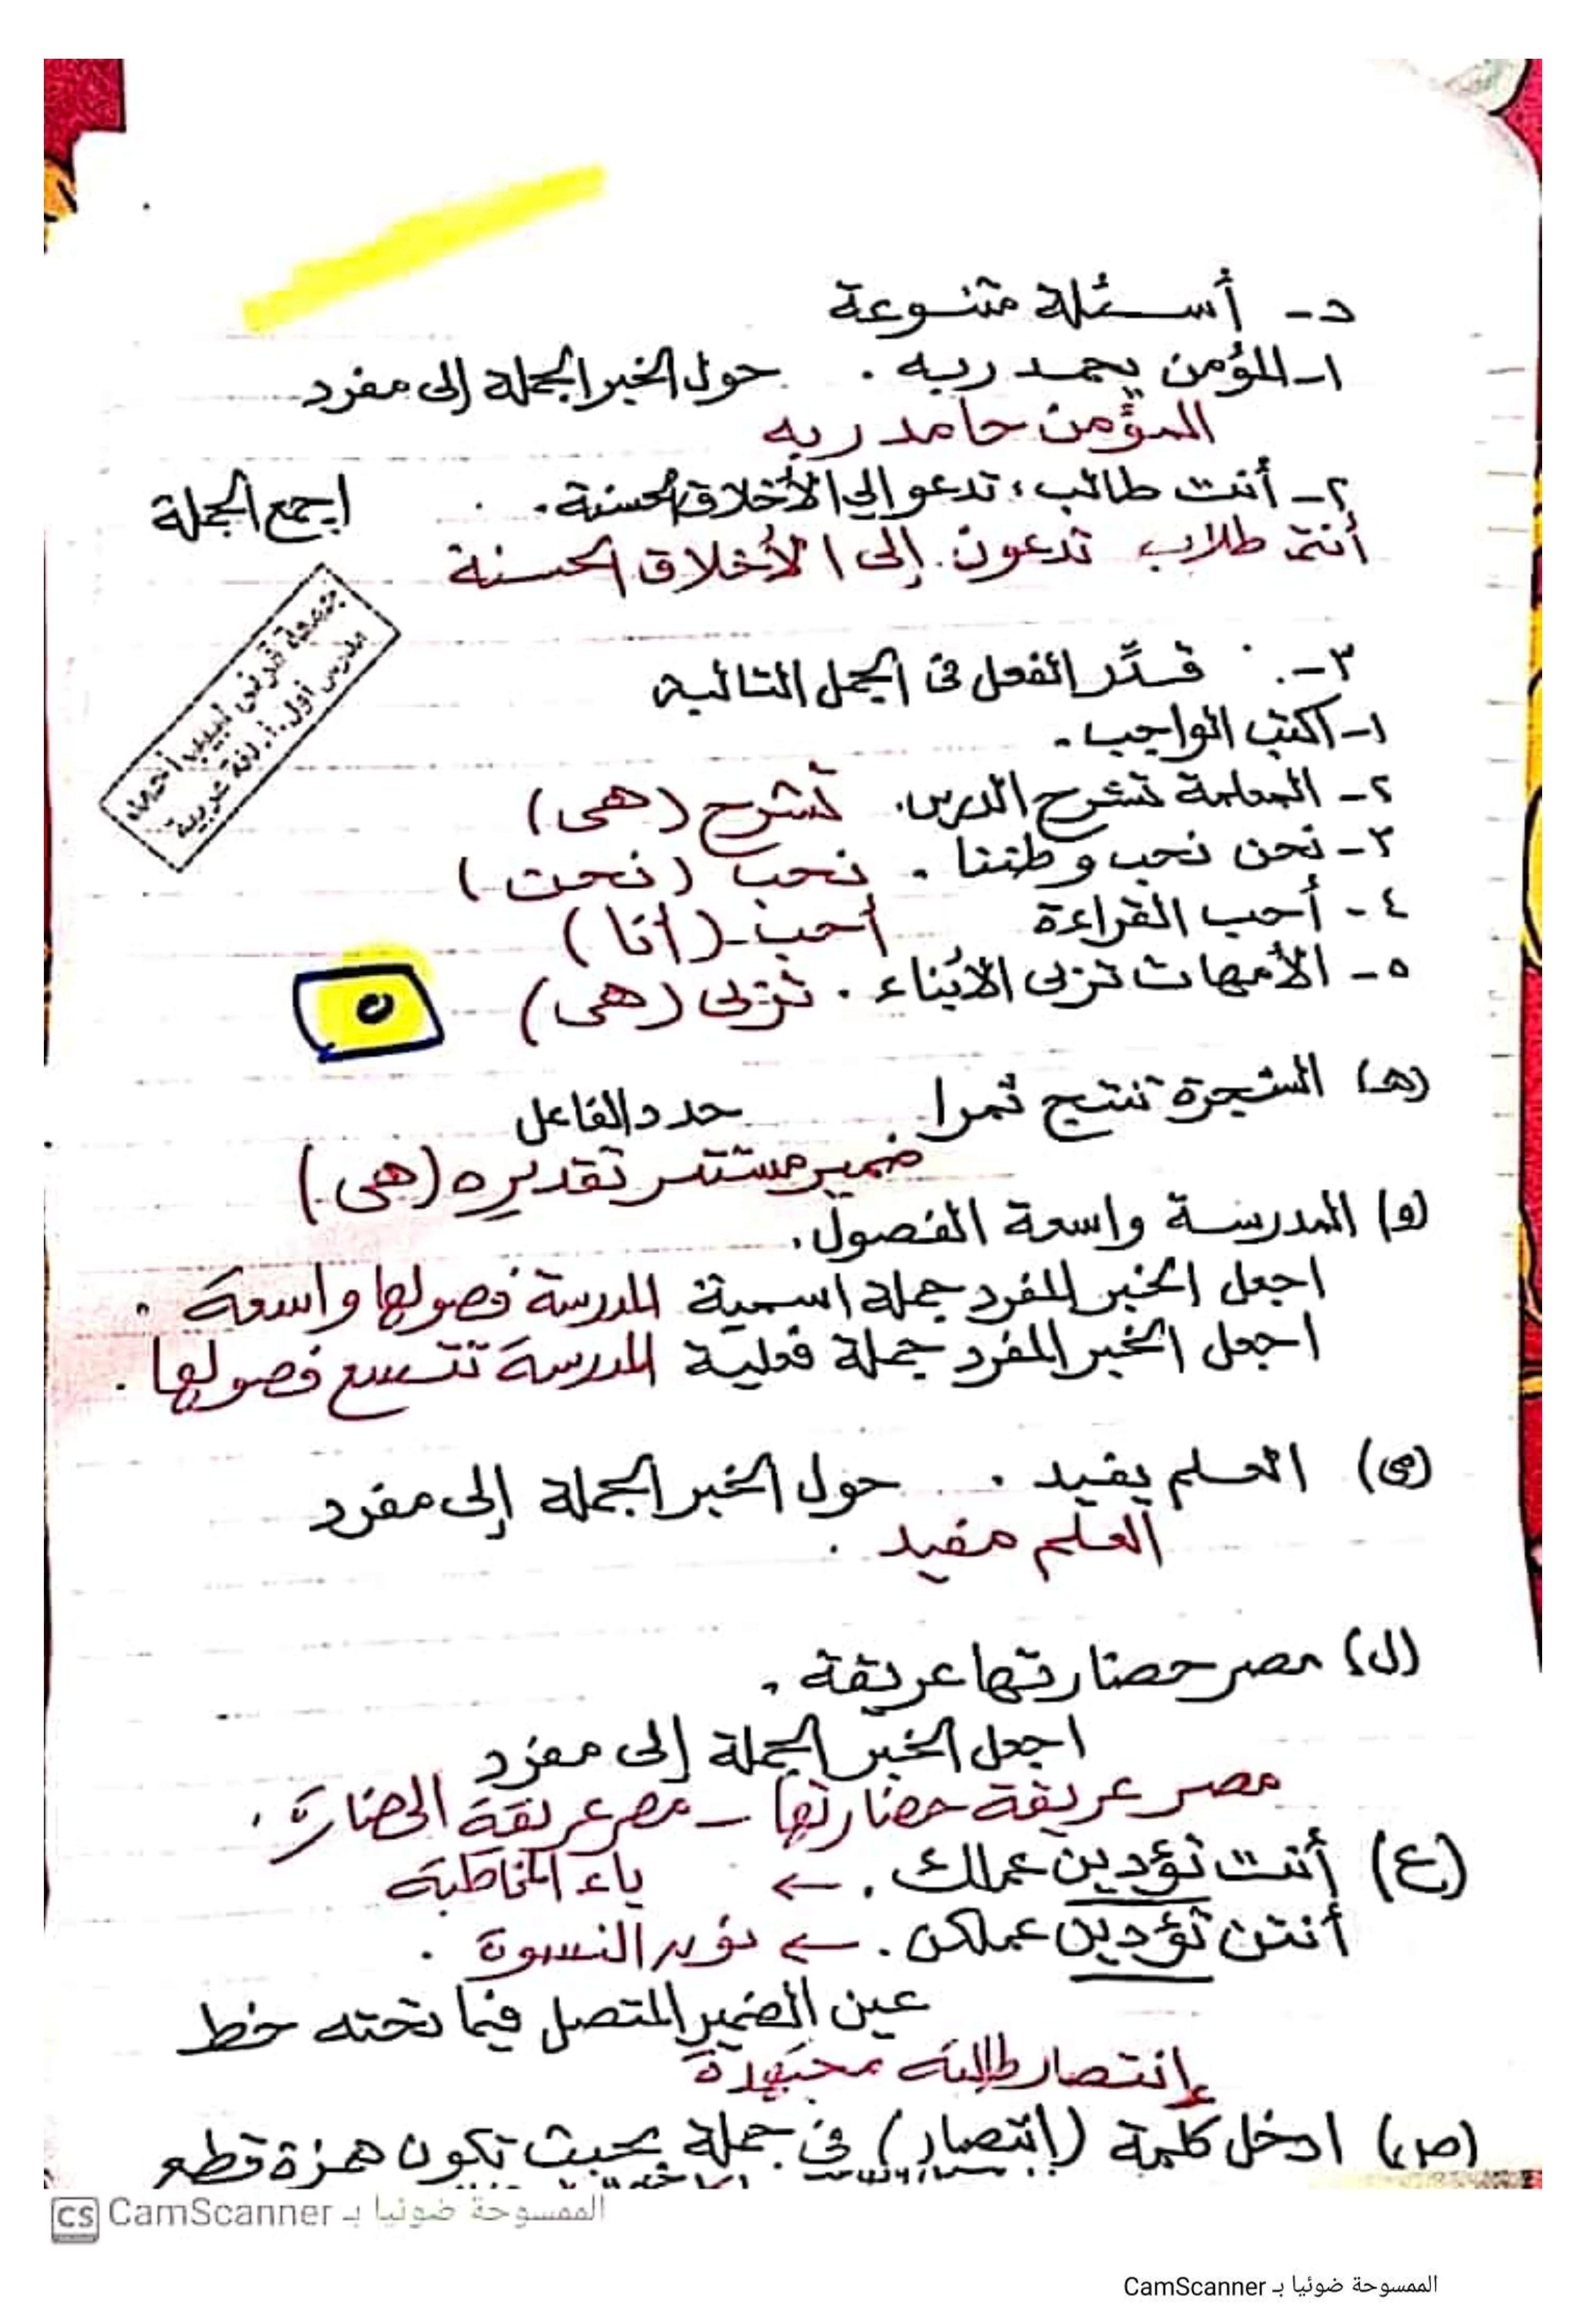 د- أسئلة متنوعة
١- المؤمن يحمد ربه . حول الخبر الجملة إلى مفرد
المؤمن حامد ربه
٢- أنت طالب، تدعو إلى الأخلاق الحسنة. اجمع الجملة
أنتم طلاب تدعون إلى الأخلاق الحسنة
٣- قدِّر الفعل في الجمل التالية
١- اكتب الواجب.
٢- المعلمة تشرح الدرس. تشرح (هى)
٣- نحن نحب وطننا . نحب (نحن)
٤- أحب القراءة أحب (أنا)
٥- الأمهات تربى الأبناء . تربى (هى)
٥
جمعة قرني لبيب أحمد
مدرس أول.أ. لغة عربية
(هـ) الشجرة تنتج ثمرا حدد الفاعل
ضمير مستتر تقديره (هى)
(و) المدرسة واسعة الفصول.
اجعل الخبر المفرد جملة اسمية المدرسة فصولها واسعة .
اجعل الخبر المفرد جملة فعلية المدرسة تتسع فصولها .
(ى) العلم يفيد . حول الخبر الجملة إلى مفرد
العلم مفيد .
(ل) مصر حضارتها عريقة .
اجعل الخبر الجملة إلى مفرد
مصر عريقة حضارتها - مصر عريقة الحضارة .
(ع) أنت تؤدين عملك . ← ياء المخاطبة
أنتن تؤدين عملكن . ← نون النسوة .
عين الضمير المتصل فيما تحته خط
إنتصار طالبة مجتهدة
(ص) ادخل كلمة (إنتصار) في جملة بحيث تكون همزة قطع
الممسوحة ضوئيا بـ CamScanner
الممسوحة ضوئيا بـ CamScanner